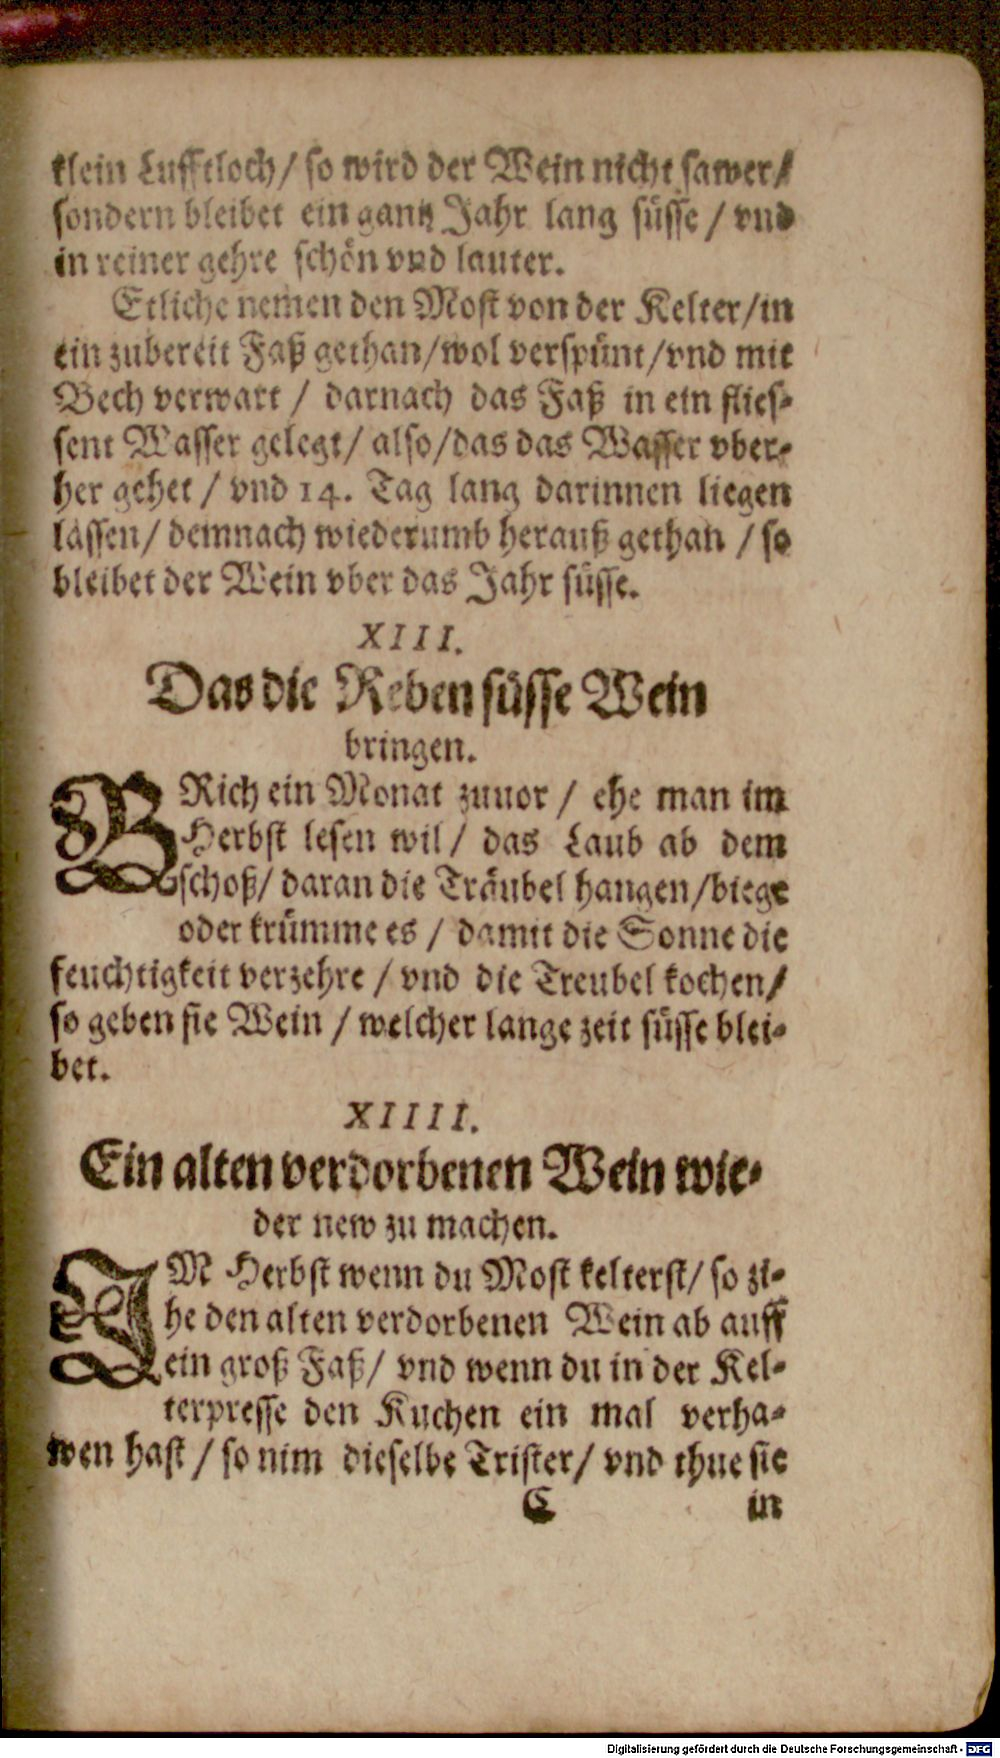 klein Lufftloch / so wird der Wein nicht sawer /
sondern bleibet ein gantz Jahr lang süsse / vnd
in reiner gehre schön vnd lauter.
Etliche nemen den Most von der Kelter / in
ein zubereit Faß gethan / wol verspünt / vnd mit
Bech verwart / darnach das Faß in ein flies-
sent Wasser gelegt / also / das das Wasser vber-
her gehet / vnd 14. Tag lang darinnen liegen
lassen / demnach wiederumb herauß gethan / so
bleibet der Wein vber das Jahr süsse.
XIII.
Das die Reben süsse Wein
bringen.
BRich ein Monat zuuor / ehe man im
Herbst lesen wil / das Laub ab dem
schoß / daran die Träubel hangen / biege
oder krümme es / damit die Sonne die
feuchtigkeit verzehre / vnd die Treubel kochen /
so geben sie Wein / welcher lange zeit süsse blei-
bet.
XIIII.
Ein alten verdorbenen Wein wie-
der new zu machen.
IM Herbst wenn du Most kelterst / so zi-
he den alten verdorbenen Wein ab auff
ein groß Faß / vnd wenn du in der Kel-
terpresse den Kuchen ein mal verha-
wen hast / so nim dieselbe Trister / vnd thue sie
C in
Digitalisierung gefördert durch die Deutsche Forschungsgemeinschaft - DFG